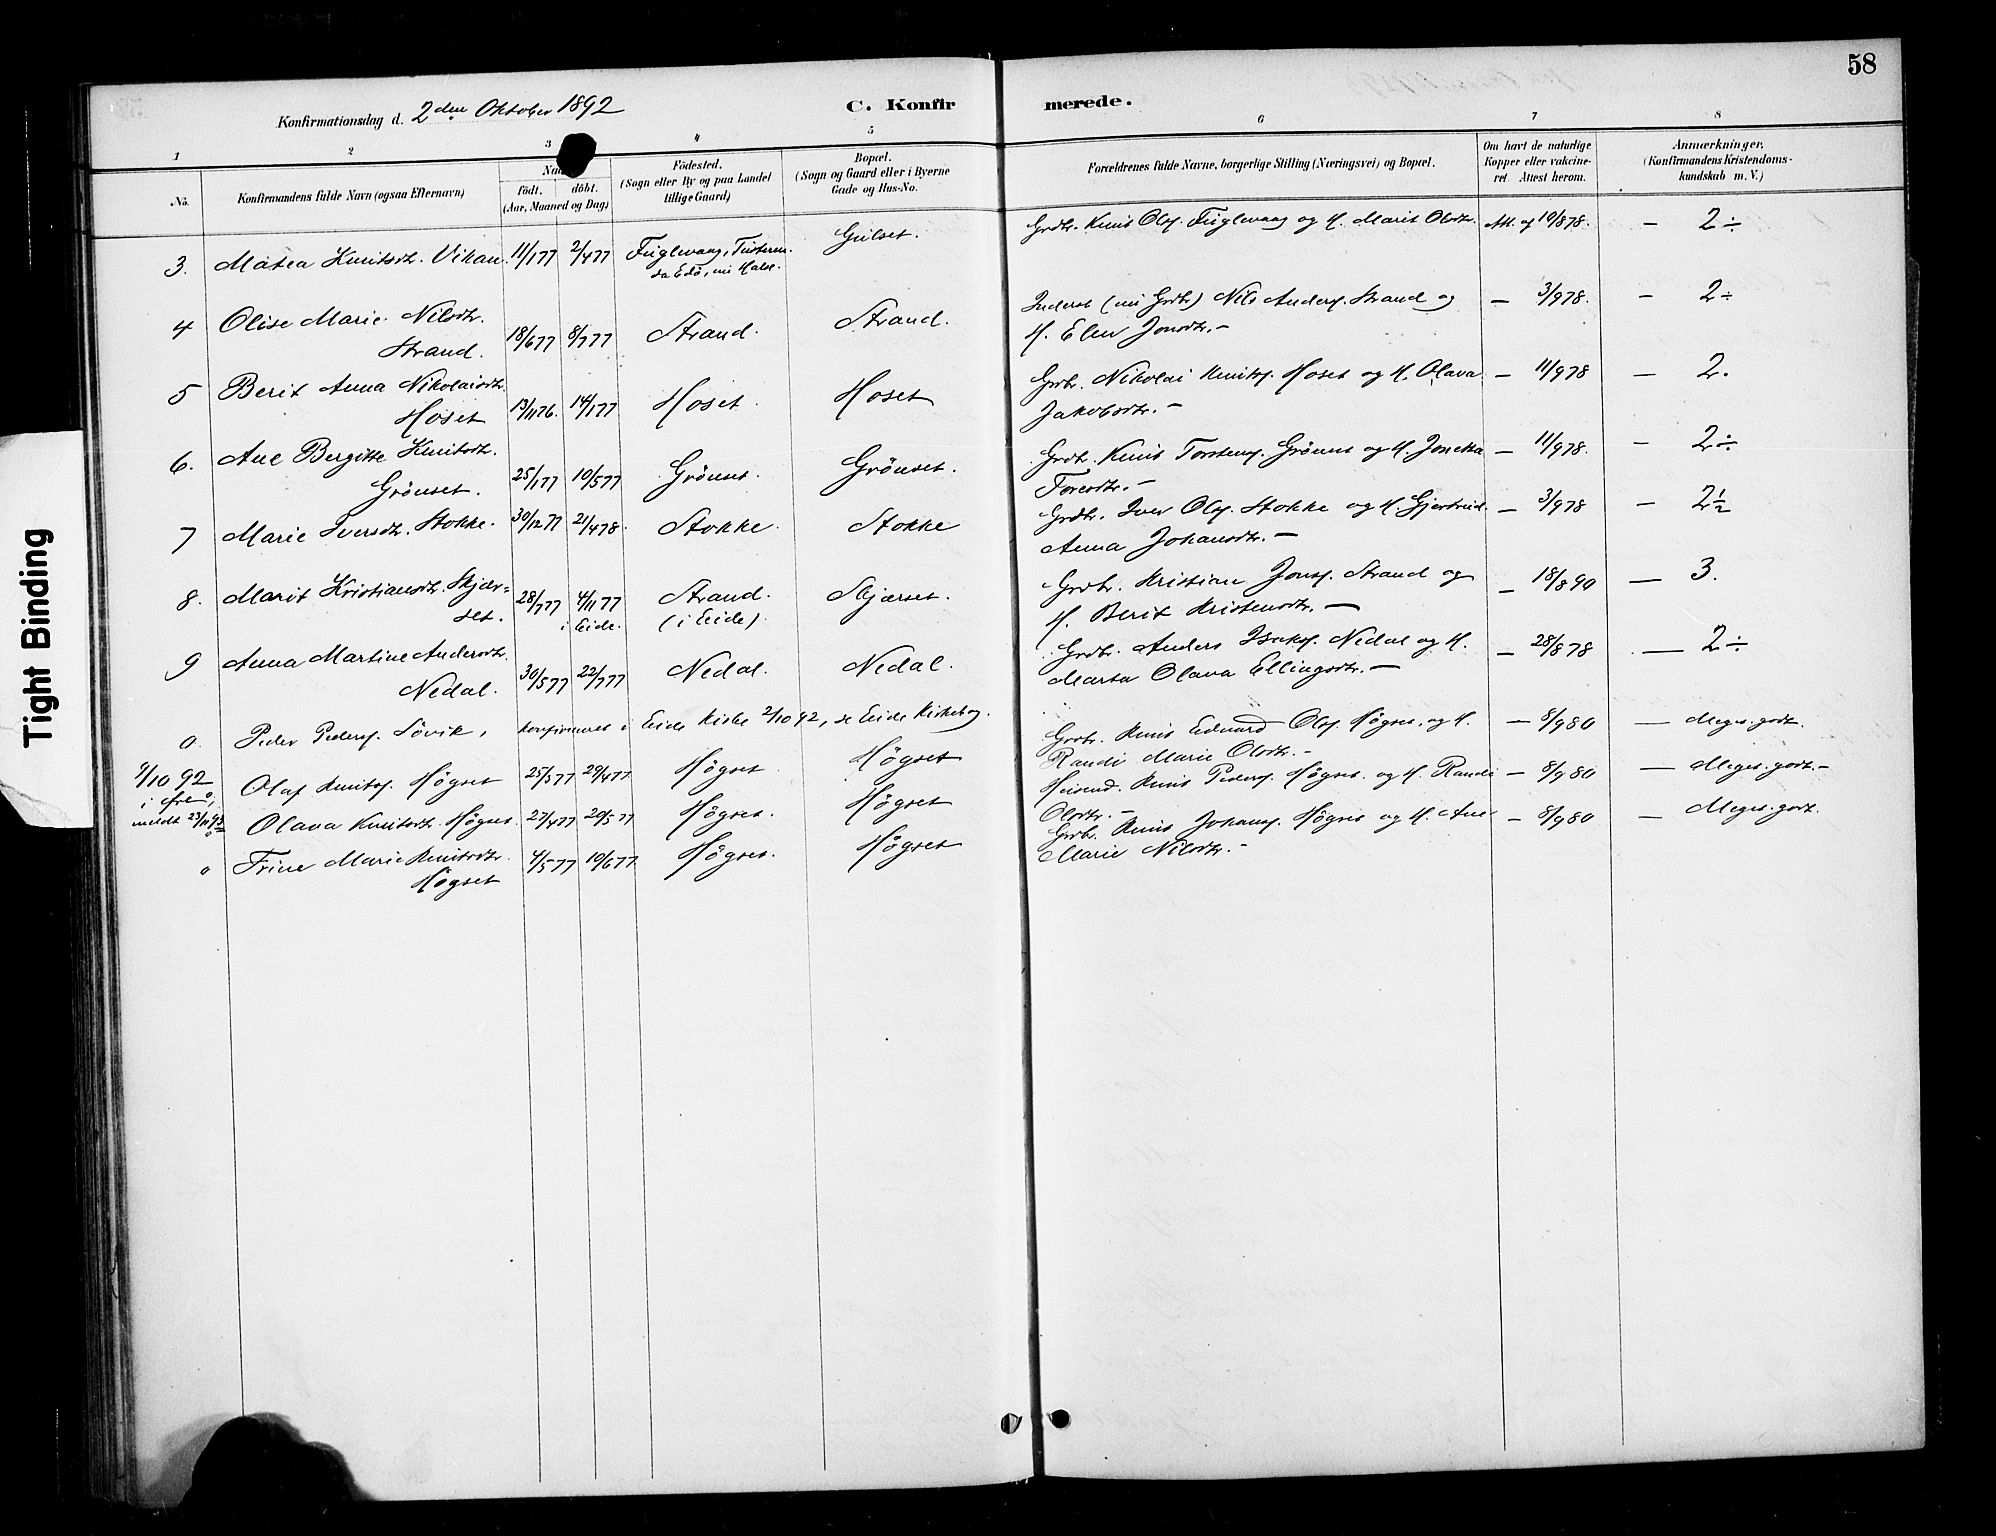 58
Konfirmationsdag d. 2den Oktober 1892
C. Konfirmerede.
1 2 3 4 5 6 7 8
No. Konfirmandens fulde Navn (ogsaa Efternavn) født. døbt. (Aar, Maaned og Dag) Fødested. (Sogn eller By og paa Landet tillige Gaard) Bopæl. (Sogn og Gaard eller i Byerne Gade og Hus-No. Forældrenes fulde Navne, borgerlige Stilling (Næringsvei) og Bopæl. Om havt de naturlige Kopper eller vakcineret. Attest herom. Anmærkninger. (Konfirmandens Kristendomskundskab m. V.)
3. Matea Knutsdtr. Vikan 11/1 77 2/4 77 Fuglevaag, Tusteren Gulset. Grdbr. Knut Ols. Fuglevaag og H. Marit Olsdtr. Att. af 10/8 78. — 2÷
sa Edø, nu Halse.
4 Olise Marie Nilsdtr. Strand. 18/6 77 8/7 77 Strand. Strand. Inderst (nu Grdbr) Nils Anders. Strand og — 3/9 78. — 2÷
H. Elen Jonsdtr. —
5 Berit Anna Nikolaisdtr. Hoset 13/11 76. 14/1 77 Hoset. Hoset Grdbr. Nikolai Knuts. Hoset og H. Olava — 11/9 78 — 2.
Jakobsdtr. —
6. Ane Bergitte Knutsdtr. Grönset. 25/1 77 10/5 77 Grönset. Grönset. Grdbr. Knut Torstens. Grönset og H. Jonetta — 11/9 78. — 2÷
Toresdtr. —
7 Marie Iversdtr. Stokke. 30/12 77 21/4 78. Stokke. Stokke Grdbr. Iver Ols. Stokke og H. Gjertrud — 3/9 78 — 2½
Anna Johansdtr. —
8. Marit Kristiansdtr. Skjærset. 28/7 77 4/11 77 i Eide. Strand. (i Eide) Skjærset. Grdbr. Kristian Jons. Strand og — 18/8 90 — 3.
H. Berit Kristensdtr. —
9 Anna Martine Andersdtr. Nedal. 30/5 77 22/7 77 Nedal. Nedal. Grdbr. Anders Isaks. Nedal og H. — 28/8 78 — 2÷
Marta Olava Ellingsdtr. —
0. Peder Peders. Lövik, konfirmeret i Eide Kirke 2/10 92, se Eide Kirkebog.
9/10 92 Olaf Knuts. Högset 25/3 77 29/4 77 Högset Högset Grdbr. Knut Eduard Ols. Högset og H. — 8/9 80 — Meget godt.
Randi Marie Olsdtr. —
Olava Knutsdtr. Högset. 27/4 77 20/5 77 Högset. Högset Knut Peders. Högset og H. Randi — 8/9 80 — Meget godt. —
Olsdtr. —
Trine Marie Knutsdtr. Högset 4/5 77 10/6 77 Högset. Högset Grdbr. Knut Johans. Högset og H. Ane — 8/9 80 — Meget godt.
Marie Nilsdtr. —
Tight Binding